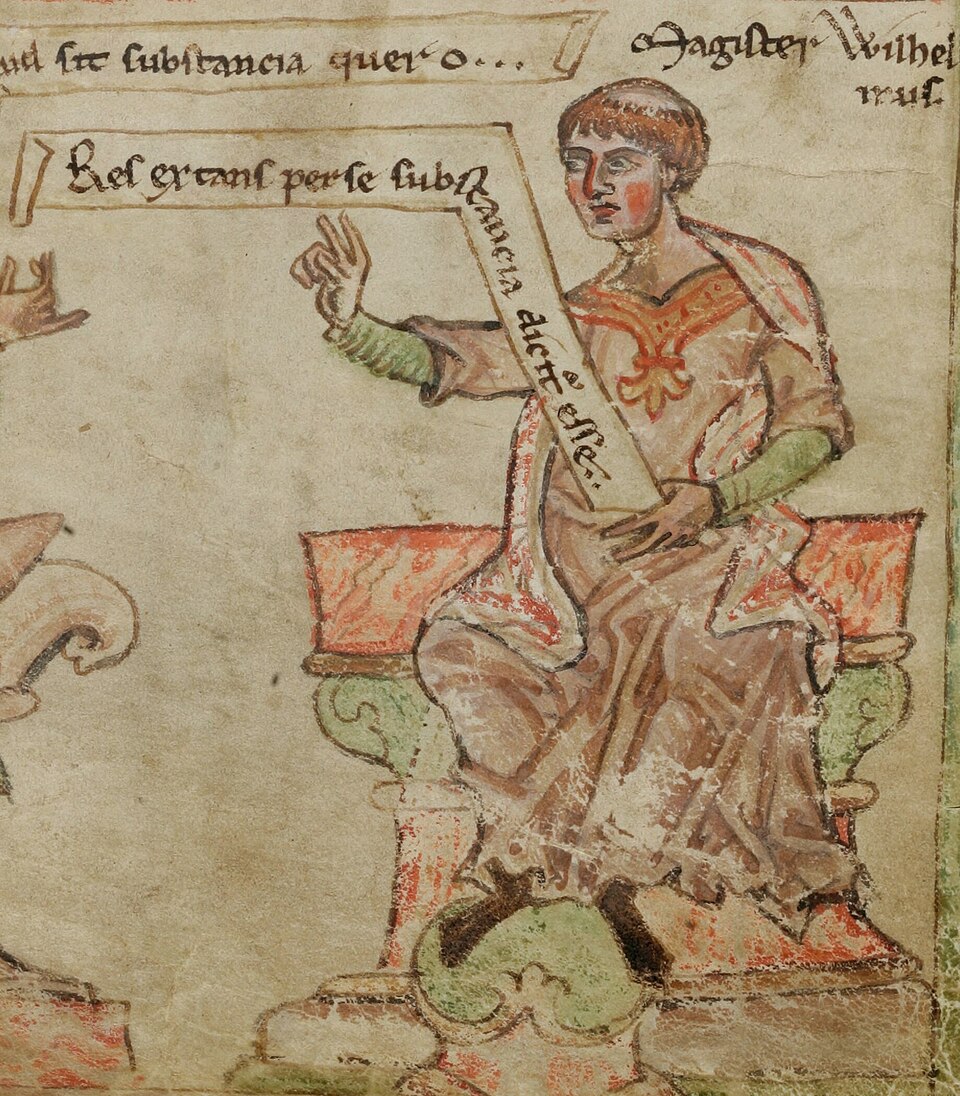 sit substancia quero...
Magister Wilhel
mus.
Res extans per se substancia dicit² esse..